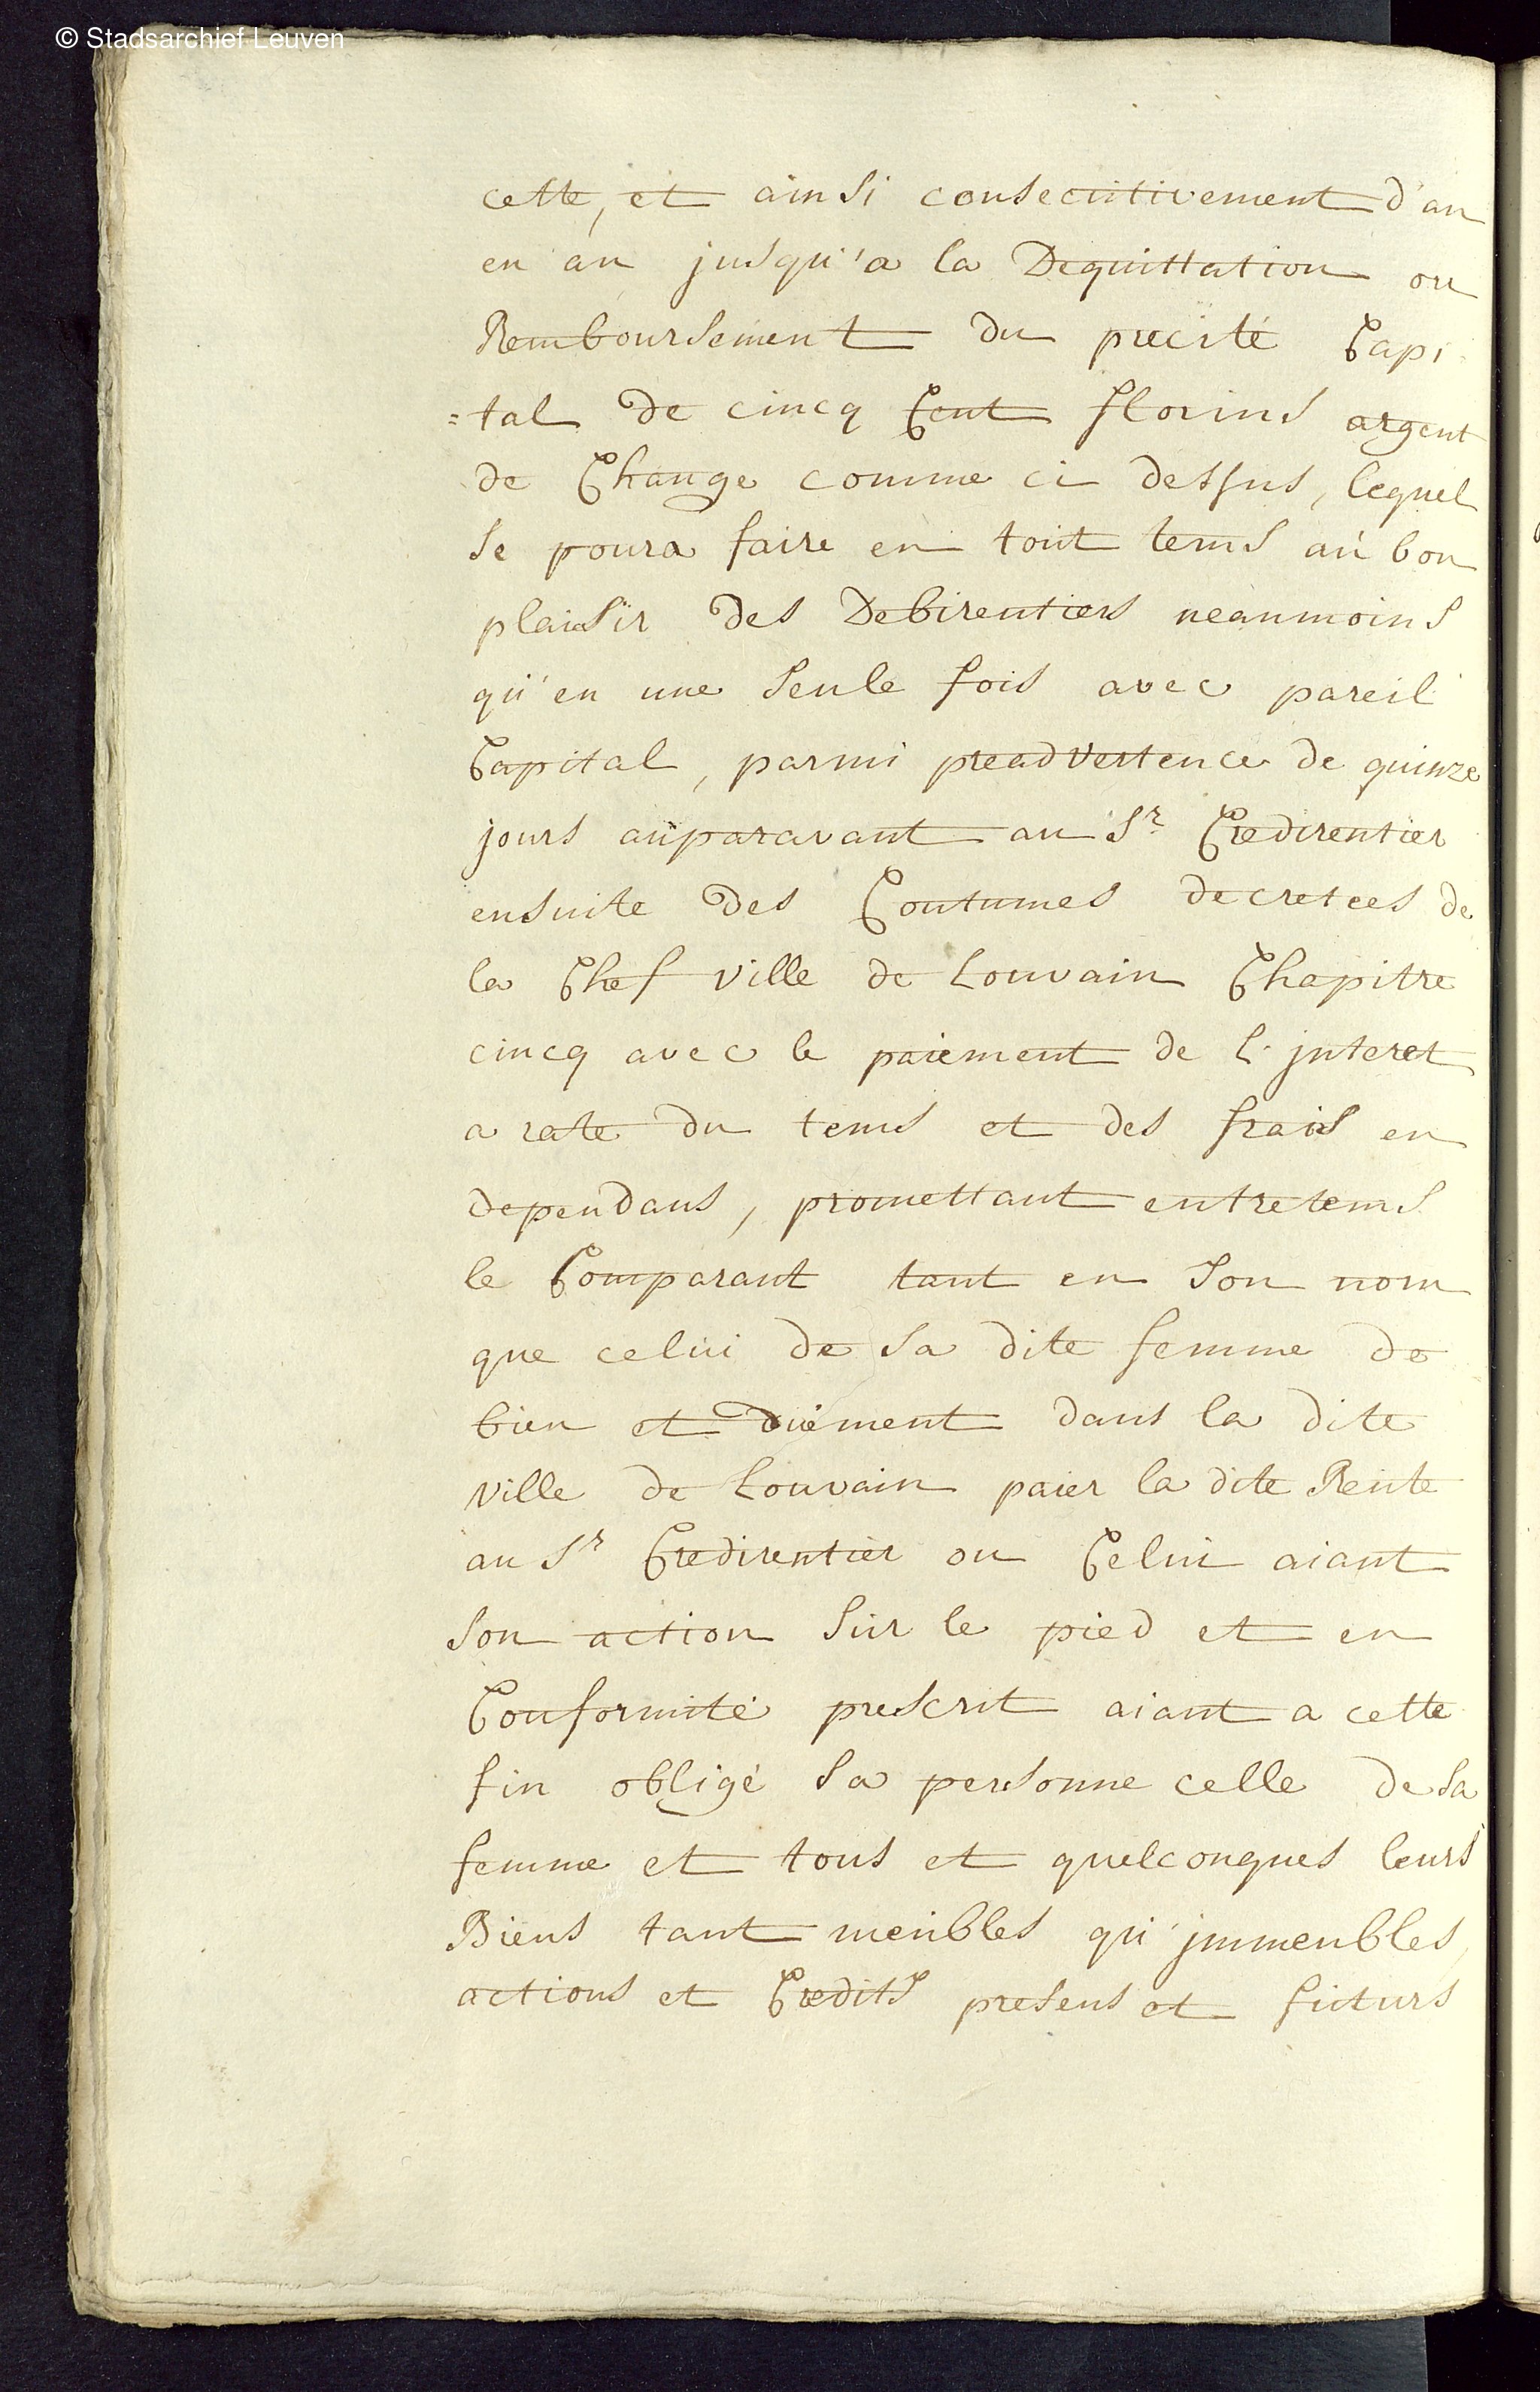 © Stadsarchief Leuven
cette, et ainsi consecutivement d'an
en an jusqu'a la Dequittation ou
Remboursement du precité Capi
=tal de cincq Cent florins argent
de Change comme ci dessus, lequel
se poura faire en tout tems au bon
plaisir des Debirentiers neanmoins
qu'en une seule fois avec pareil
Capital, parmi preadvertence de quinze
jours auparavant au Sr Credirentier
ensuite des Coutumes decretees de
la Chef ville de Louvain Chapitre
cincq avec le paiement de l'jnteret
a rate du tems et des frais en
dependans, promettant entretems
le Comparant tant en son nom
que celui de sa dite femme de
bien et duëment dans la dite
ville de Louvain paier la dite Rente
au Sr Credirentier ou Celui aiant
son action sur le pied et en
Conformité prescrit aiant a cette
fin obligé sa personne celle de sa
femme et tous et quelconques leurs
Biens tant meubles qu'jmmeubles,
actions et Credits presens et futurs